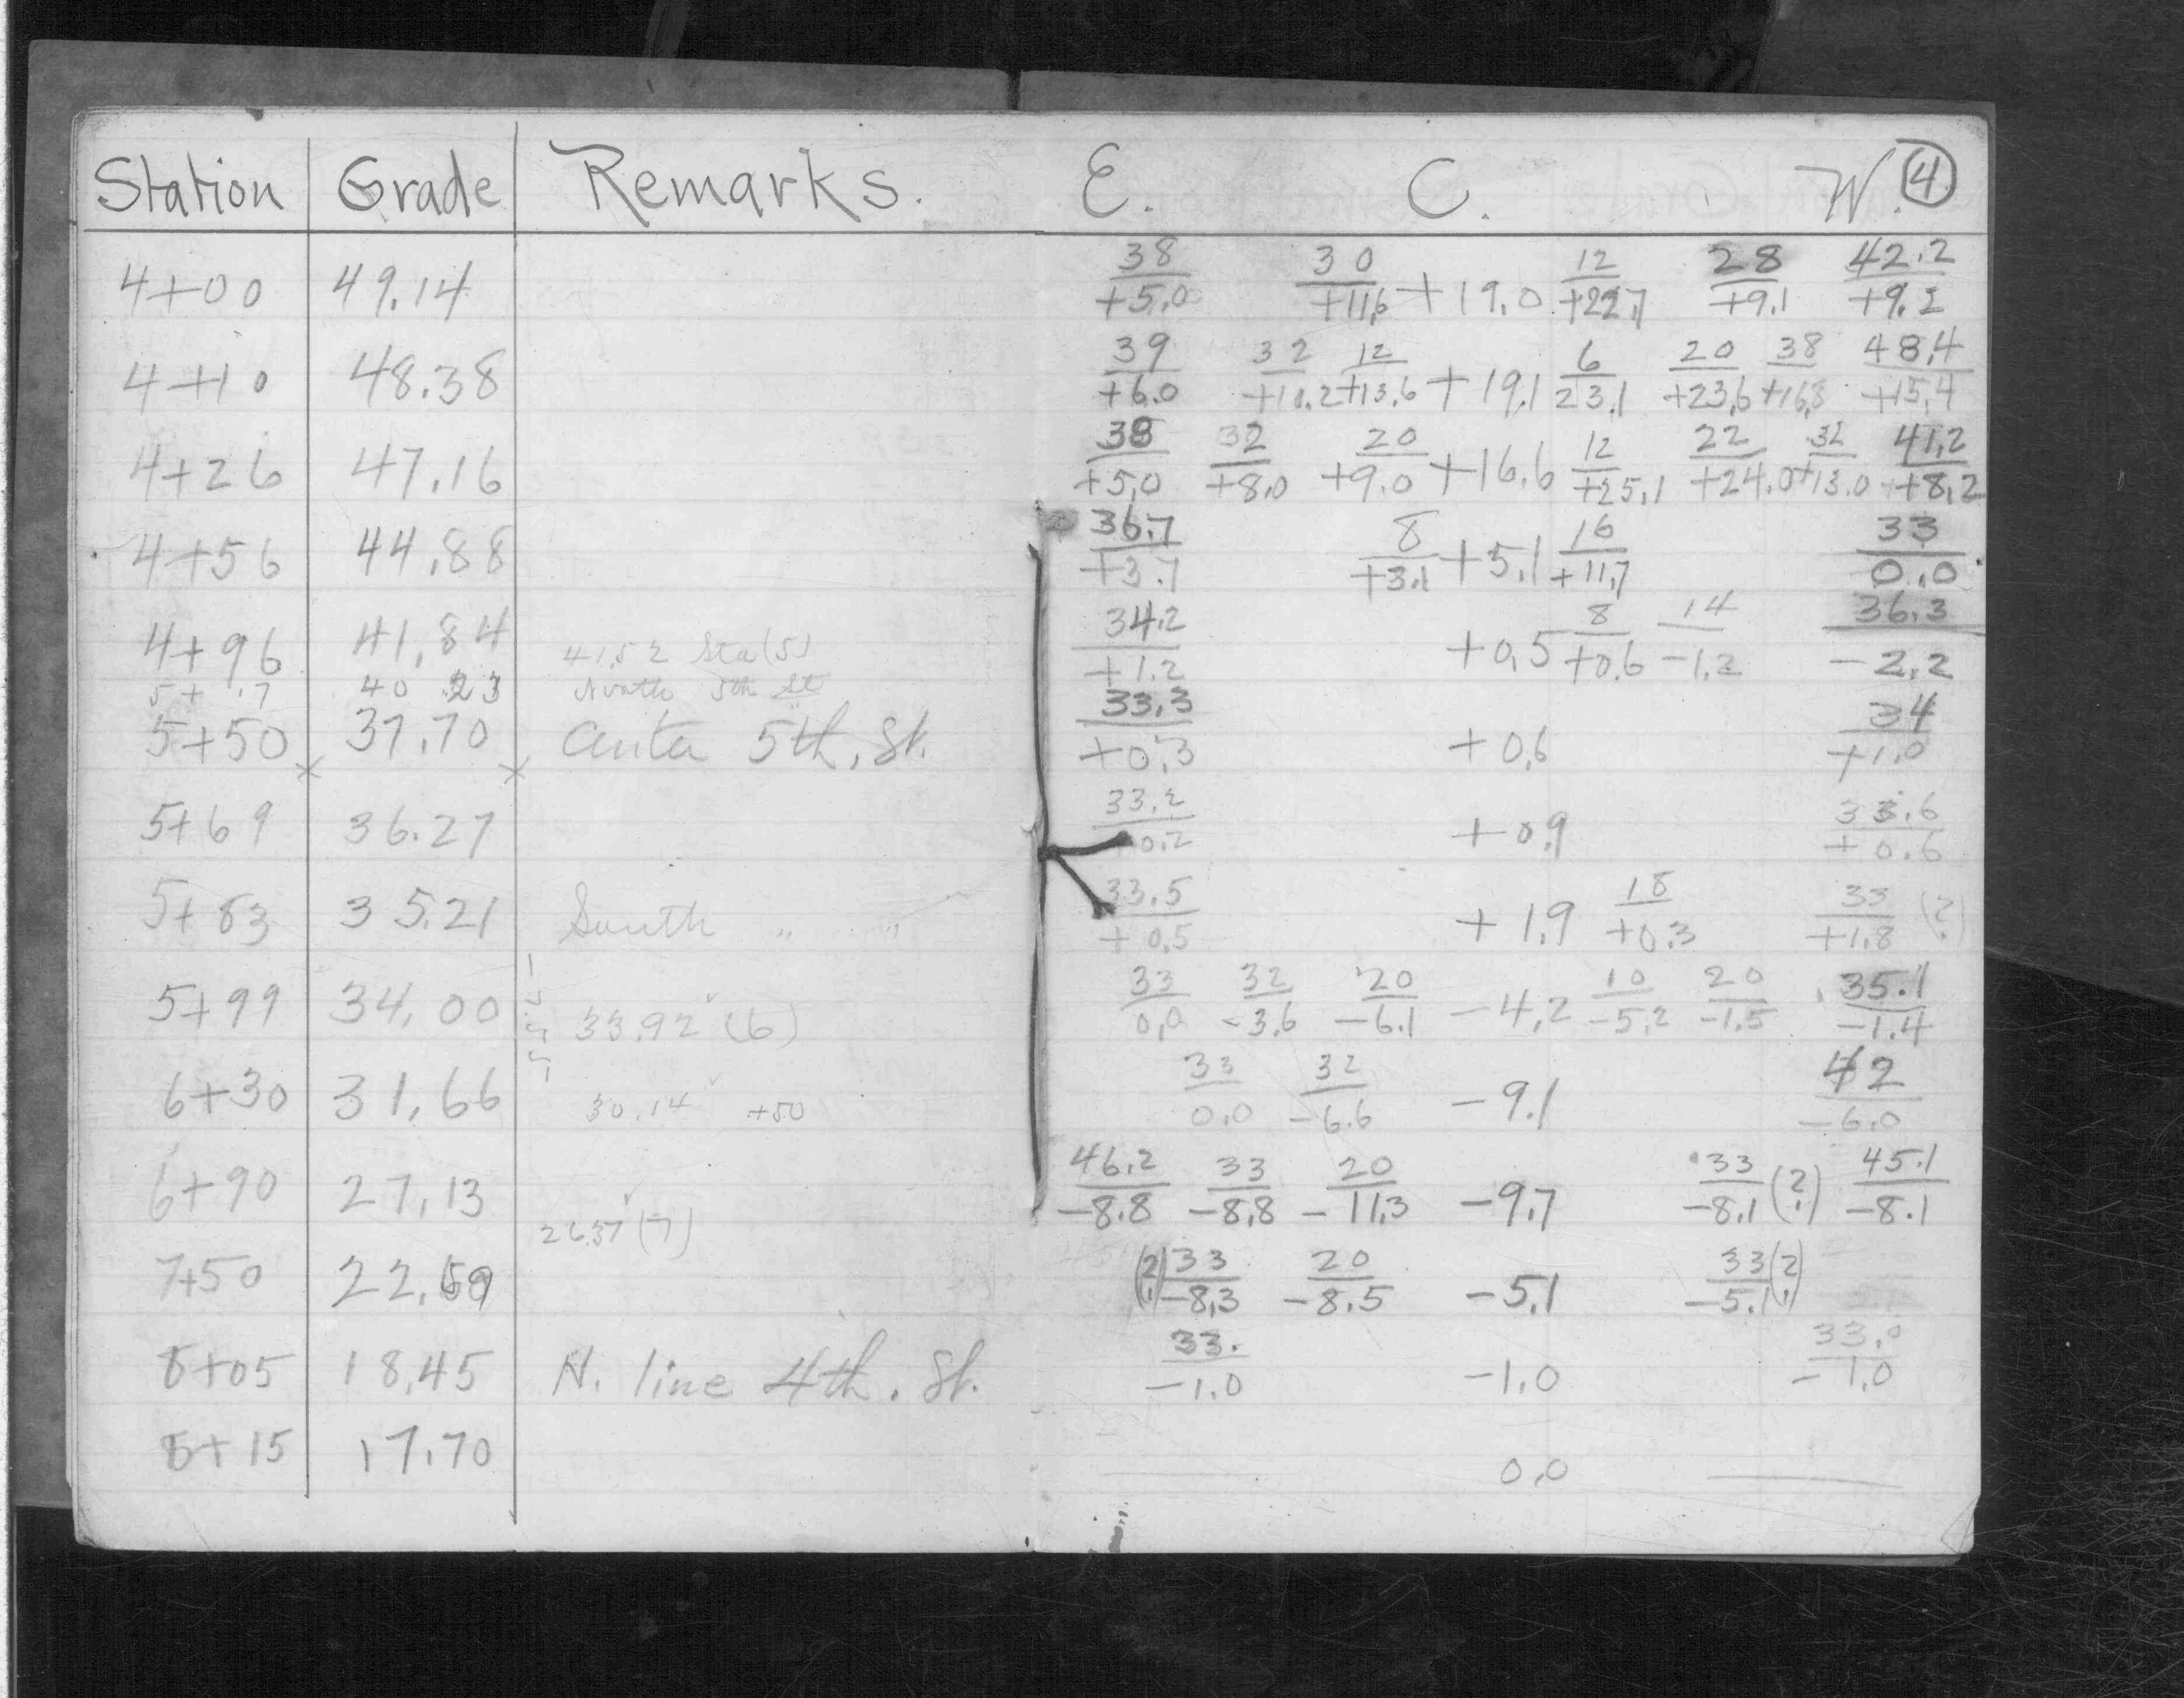 Station Grade Remarks. E. C. W. 4
4+00 49.14 38/+5.0 30/+11.6 +19.0 12/+22.7 28/+9.1 42.2/+9.2
4+10 48.38 39/+6.0 32/+10.2 12/+13.6 +19.1 6/23.1 20/+23.6 38/+16.8 48.4/+15.4
4+26 47.16 38/+5.0 32/+8.0 20/+9.0 +16.6 12/+25.1 22/+24.0 32/+13.0 41.2/+8.2
4+56 44.88 36.7/+3.7 8/+3.1 +5.1 16/+11.7 33/0.0
4+96 41.84 41.52 Sta (5) 34.2/+1.2 +0.5 8/+0.6 14/-1.2 36.3/-2.2
5+17 40 23 North 5th St
5+50 37.70 Center 5th, St. 33.3/+0.3 +0.6 34/+1.0
5+69 36.27 33.2/+0.2 +0.9 33.6/+0.6
5+83 35.21 South " " 33.5/+0.5 +1.9 18/+0.3 33/+1.8 (?)
5+99 34.00 33.92 (6) 33/0.0 32/-3.6 20/-6.1 -4.2 10/-5.2 20/-1.5 35.1/-1.4
6+30 31.66 30.14 +50 33/0.0 32/-6.6 -9.1 42/-6.0
6+90 27.13 46.2/-8.8 33/-8.8 20/-11.3 -9.7 33/-8.1 (?) 45.1/-8.1
26.37 (7)
7+50 22.59 (?) 33/-8.3 20/-8.5 -5.1 33/-5.1 (?)
8+05 18.45 N. line 4th. St. 33./-1.0 -1.0 33.0/-1.0
8+15 17.70 0.0